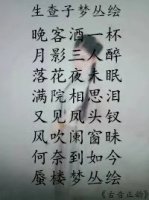 生查子梦丛绘
晚客酒一杯
月影三人醉
落花夜未眠
满院相思泪
又见凤头钗
风吹闲窗昧
何奈到如今
蜃楼梦丛绘
《古音正韵》